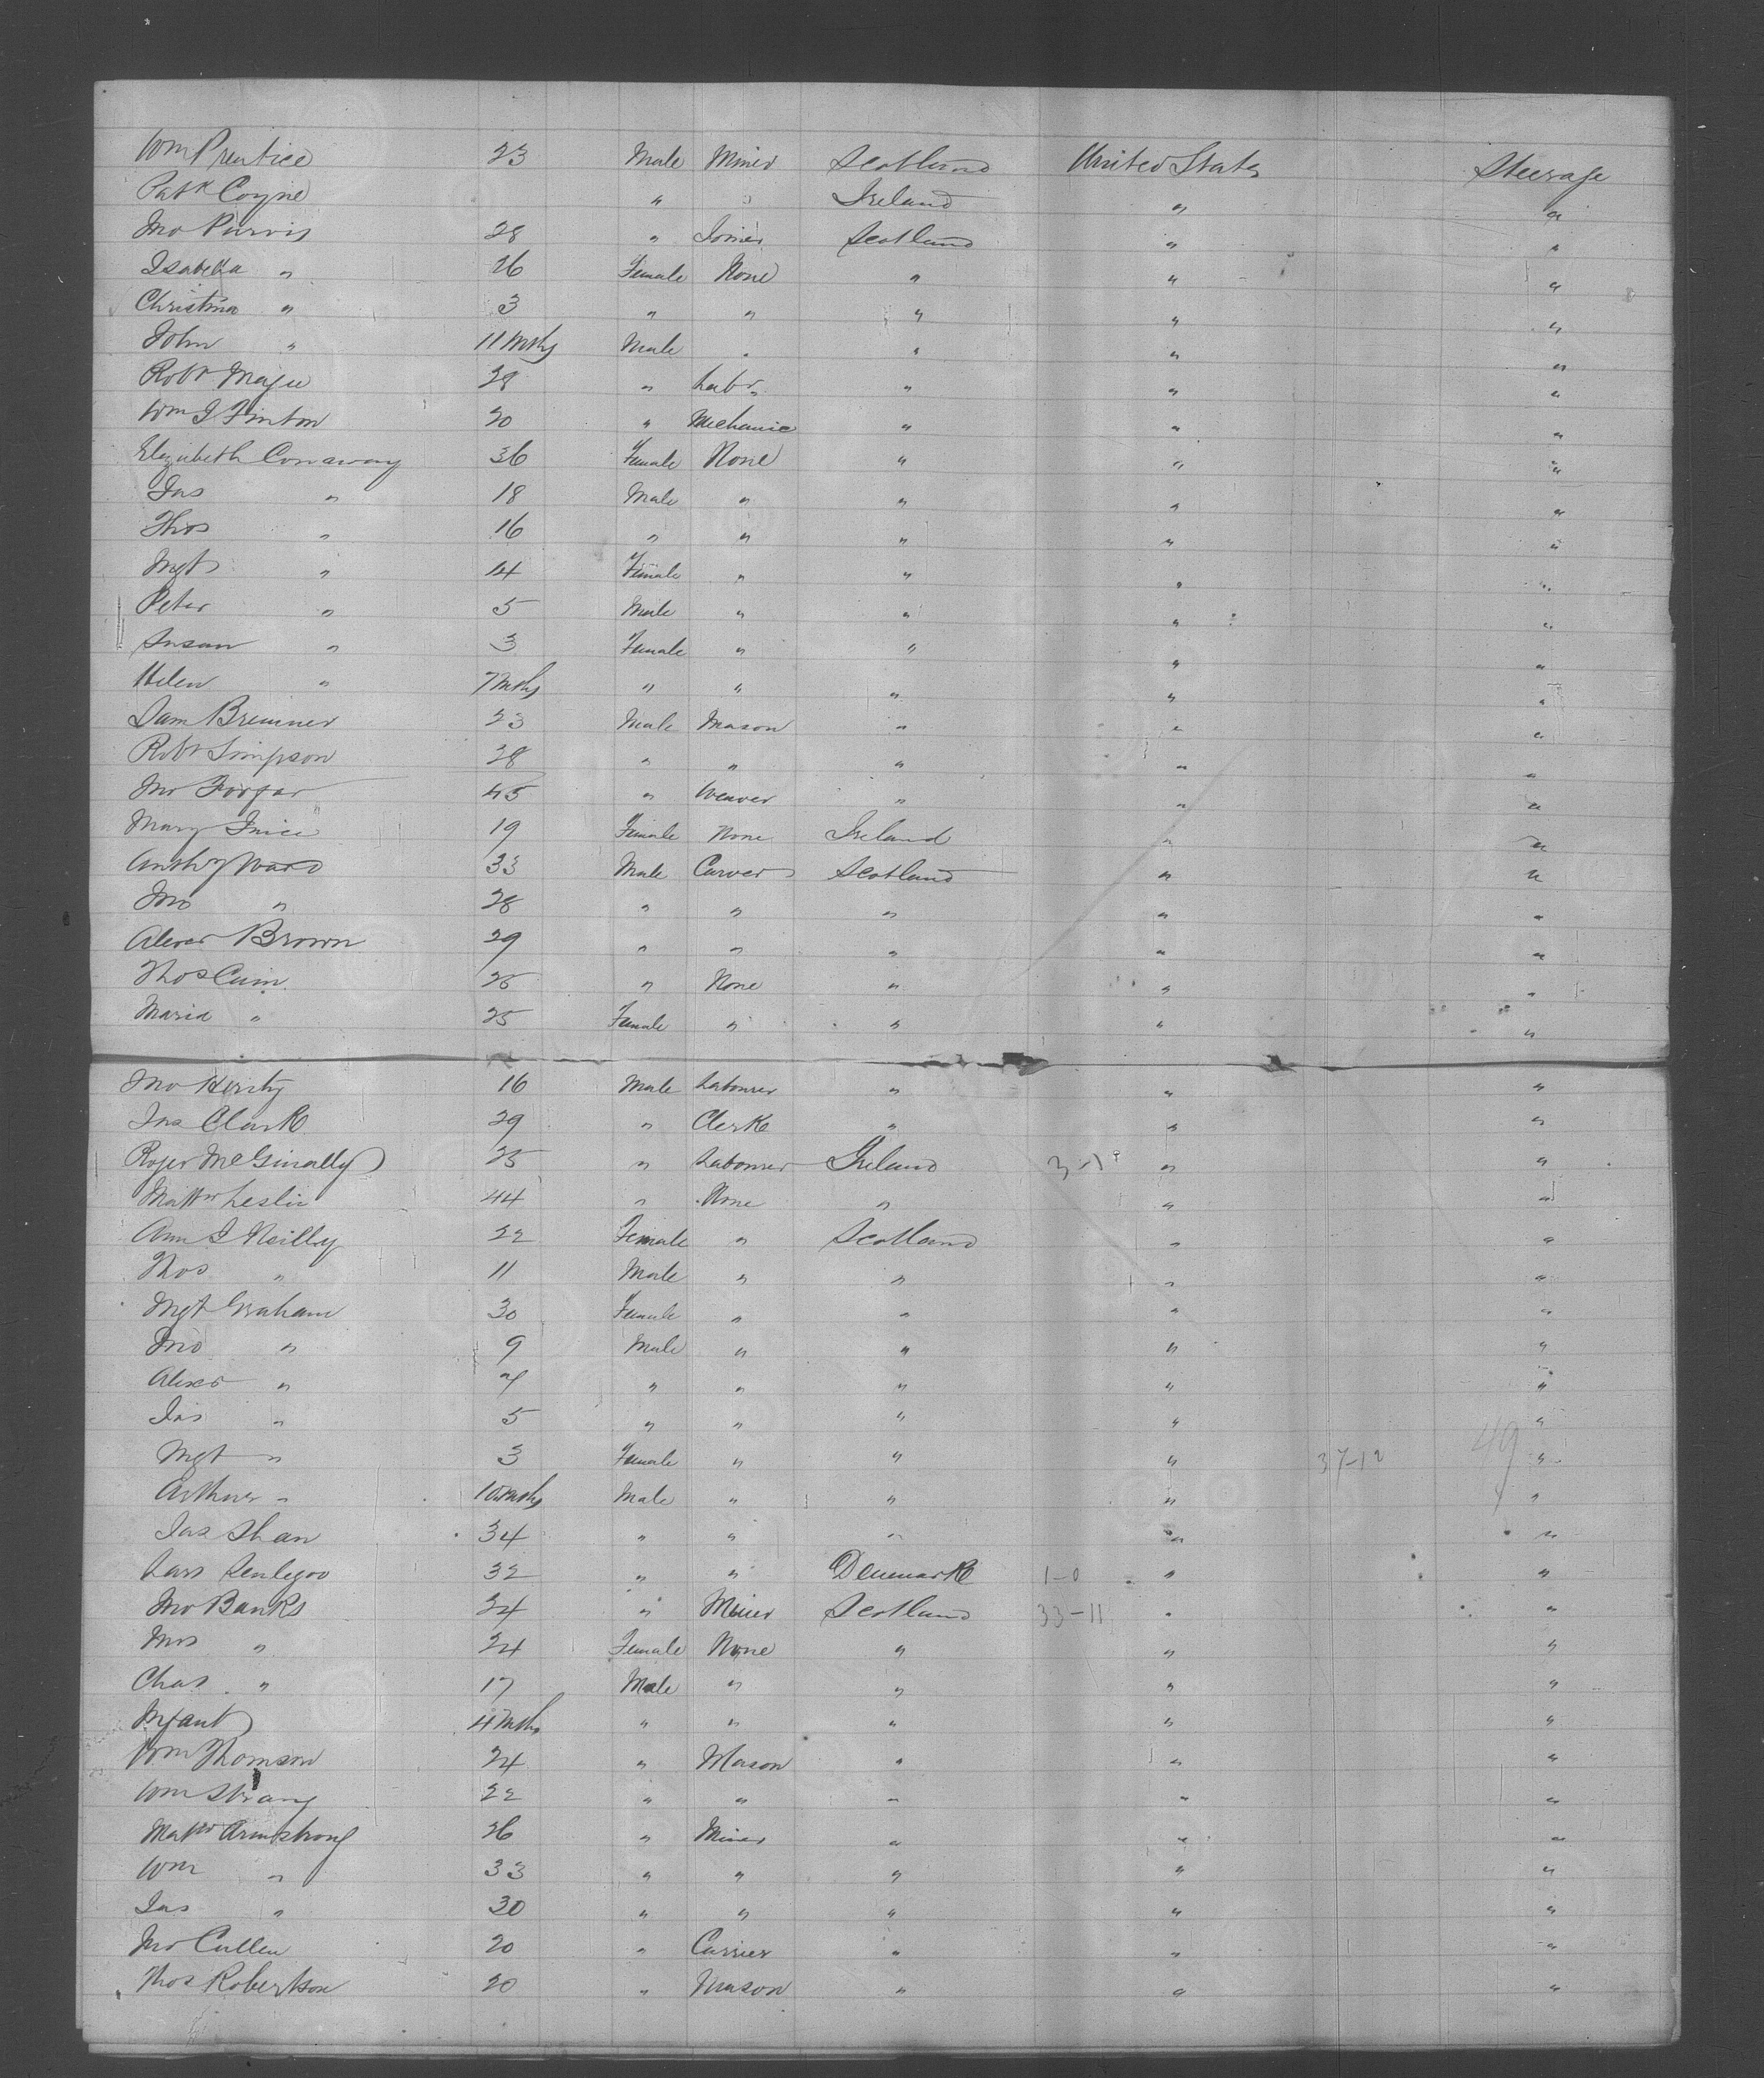 Wm Prentice 23 Male Miner Scotland United States Steerage
Patk Coyne " " Ireland " "
Jno Purvis 28 " Joiner Scotland " "
Isabella " 26 Female None " " "
Christina " 3 " " " " "
John " 11 Mths Male " " " "
Robt 28 " Labr " " "
Wm J Finton 20 " Mechanic " " "
Elizabeth Conaway 36 Female None " " "
Jas " 18 Male " " " "
Thos " 16 " " " " "
Mgt " 14 Female " " " "
Peter " 5 Male " " " "
Susan " 3 Female " " " "
Helen " 7 Mths " " " " "
Sam Bremner 23 Male Mason " " "
Robt Simpson 28 " " " " "
Jno Forgar 45 " Weaver " " "
Mary 19 Female None Ireland " "
Anthy Ward 33 Male Carver Scotland " "
Jno " 28 " " " " "
Alexr Brown 29 " " " " "
Thos " None " " "
Maria " 25 Female " " " "
Jno 16 Male Labourer " " "
Jas Clark 29 " Clerk " " "
Roger McGinally 25 " Labourer Ireland " "
Mattw Leslie 44 " None " " "
Ann J Reilly 22 Female " Scotland " "
Thos " 11 Male " " " "
Mgt Graham 30 Female " " " "
Jno " 9 Male " " " "
Alexr " 7 " " " " "
Jas " 5 " " " " "
Mgt " 3 Female " " " 37-12 49 "
Arthur " 10 Mths Male " " " "
Jas Shan 34 " " " " "
Lars 32 " " Denmark 1-0 " "
Jno Banks 24 " Miner Scotland 33-11 " "
Mrs " 24 Female None " " "
Chas " 17 Male " " " "
Infant 4 Mths " " " " "
Wm Thomson 24 " Mason " " "
Wm Strang 22 " " " " "
Mattw Armstrong 26 " Miner " " "
Wm " 33 " " " " "
Jas " 30 " " " " "
Jno Cullen 20 " Currier " " "
Thos Robertson 20 " Mason " " "